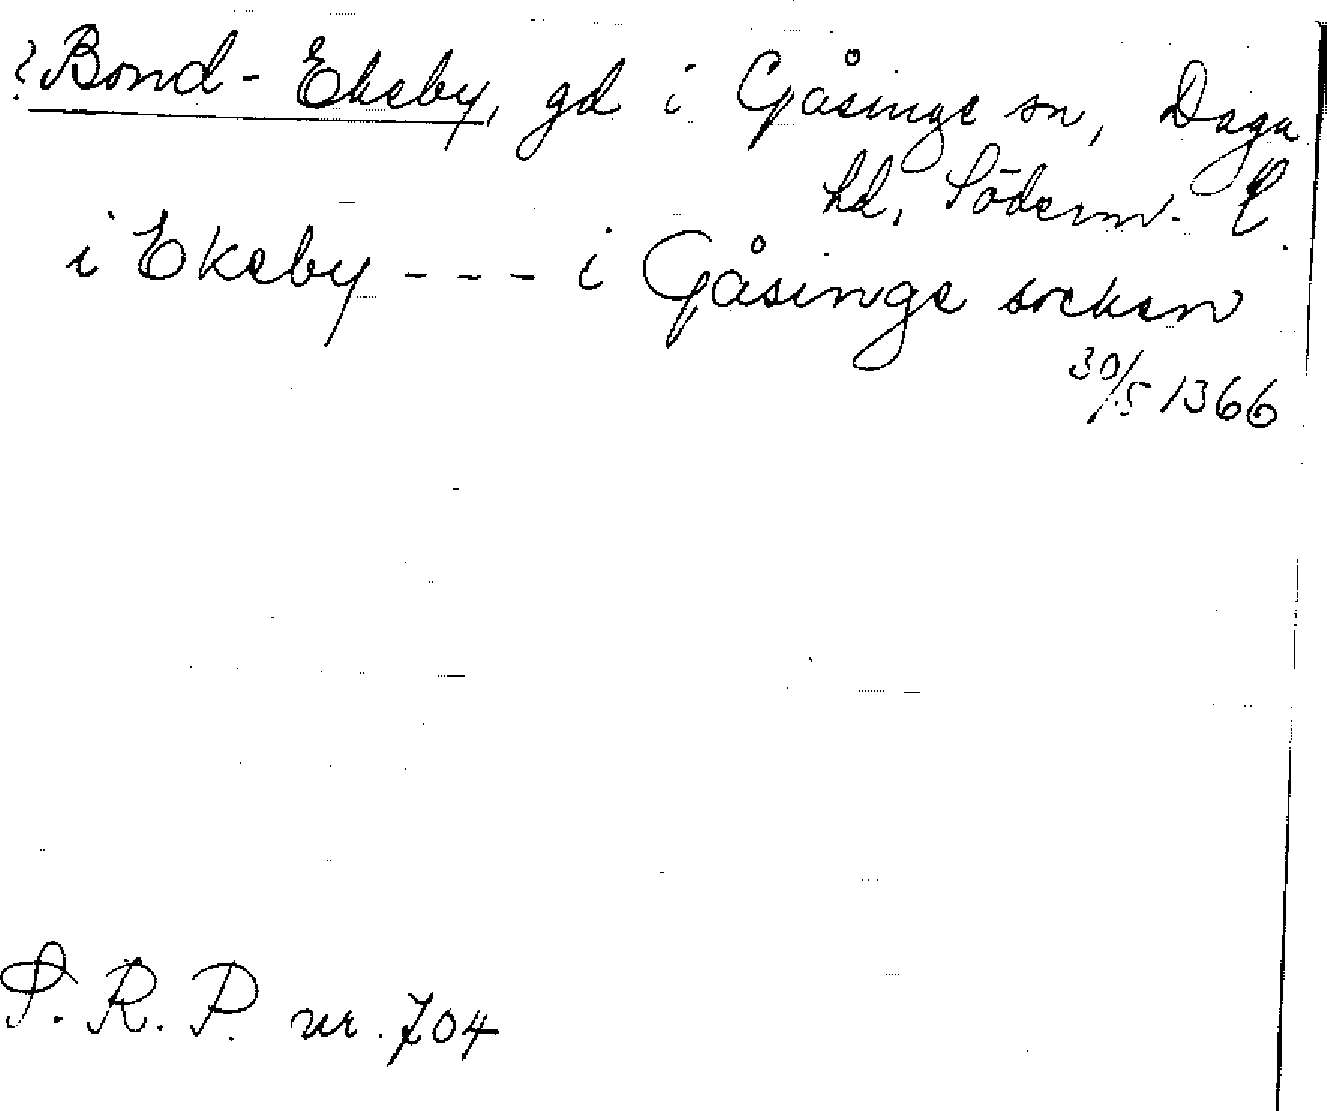 ? Bond-Ekeby, gd i Gåsinge sn, Daga
hd, Söderm. l.
i Ekeby - - - i Gåsinge socken
30/5 1366
S. R. P. nr. 704